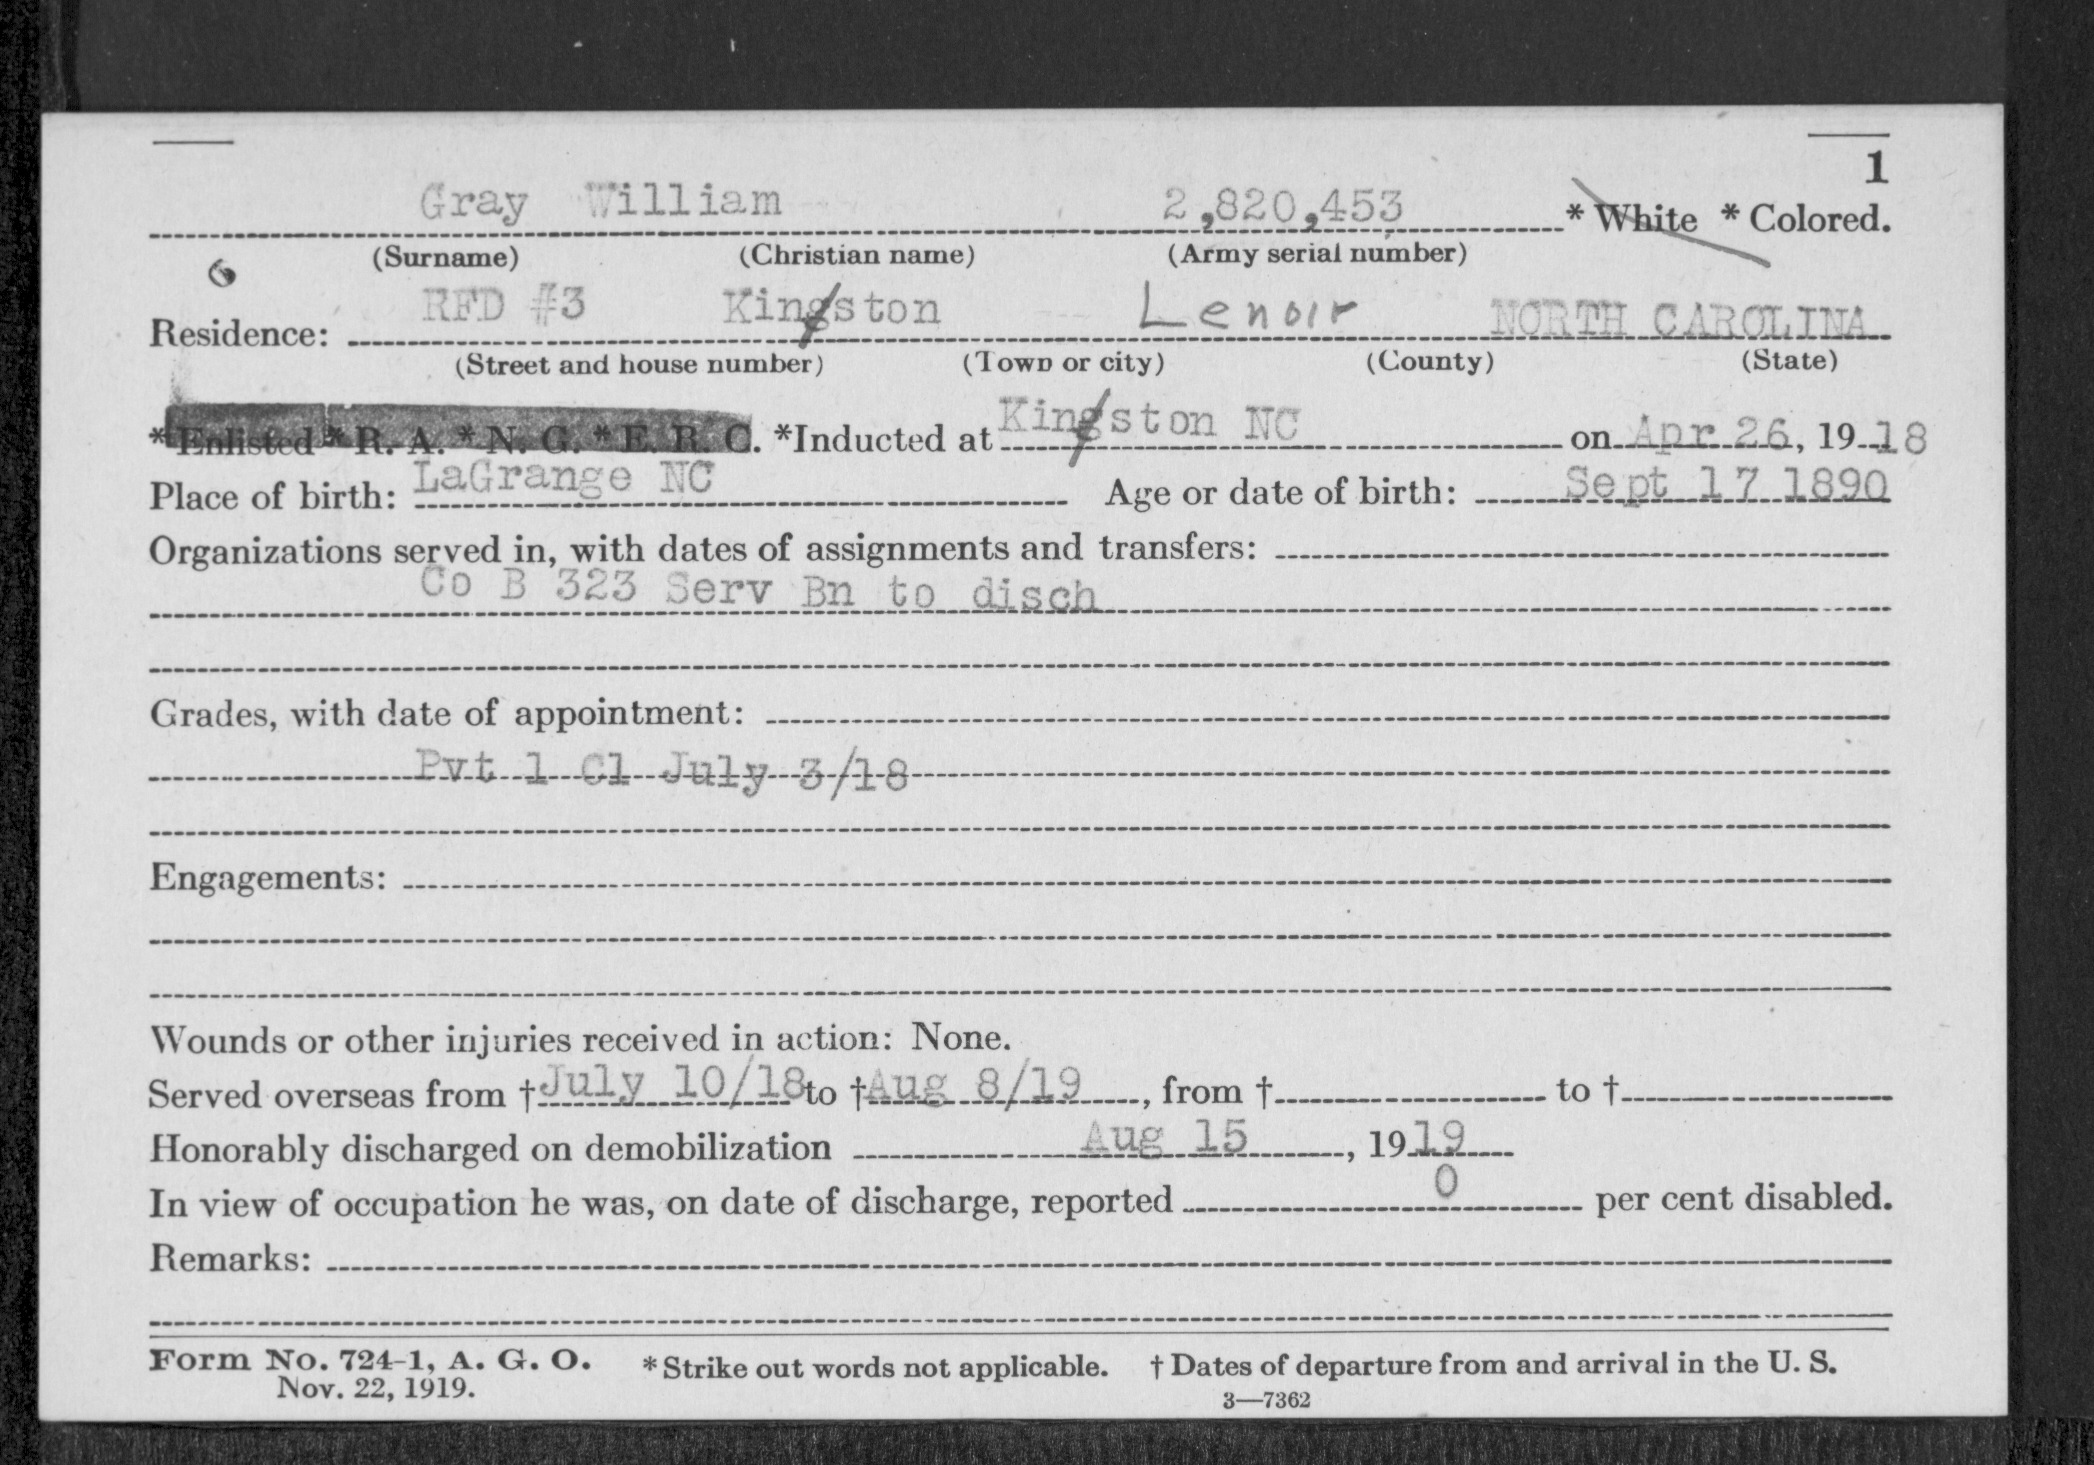 1
Gray William 2,820,453 * White * Colored.
(Surname) (Christian name) (Army serial number)
Residence: RFD #3 Kingston Lenoir NORTH CAROLINA
(Street and house number) (Town or city) (County) (State)
* Enlisted * R. A. * N. G. * E. R. C. *Inducted at Kingston NC on Apr 26, 1918
Place of birth: LaGrange NC Age or date of birth: Sept 17 1890
Organizations served in, with dates of assignments and transfers:
Co B 323 Serv Bn to disch
Grades, with date of appointment:
Pvt 1 Cl July 3/18
Engagements:
Wounds or other injuries received in action: None.
Served overseas from † July 10/18 to † Aug 8/19, from † to †
Honorably discharged on demobilization Aug 15, 1919
In view of occupation he was, on date of discharge, reported 0 per cent disabled.
Remarks:
Form No. 724-1, A. G. O. * Strike out words not applicable. † Dates of departure from and arrival in the U. S.
Nov. 22, 1919. 3—7362